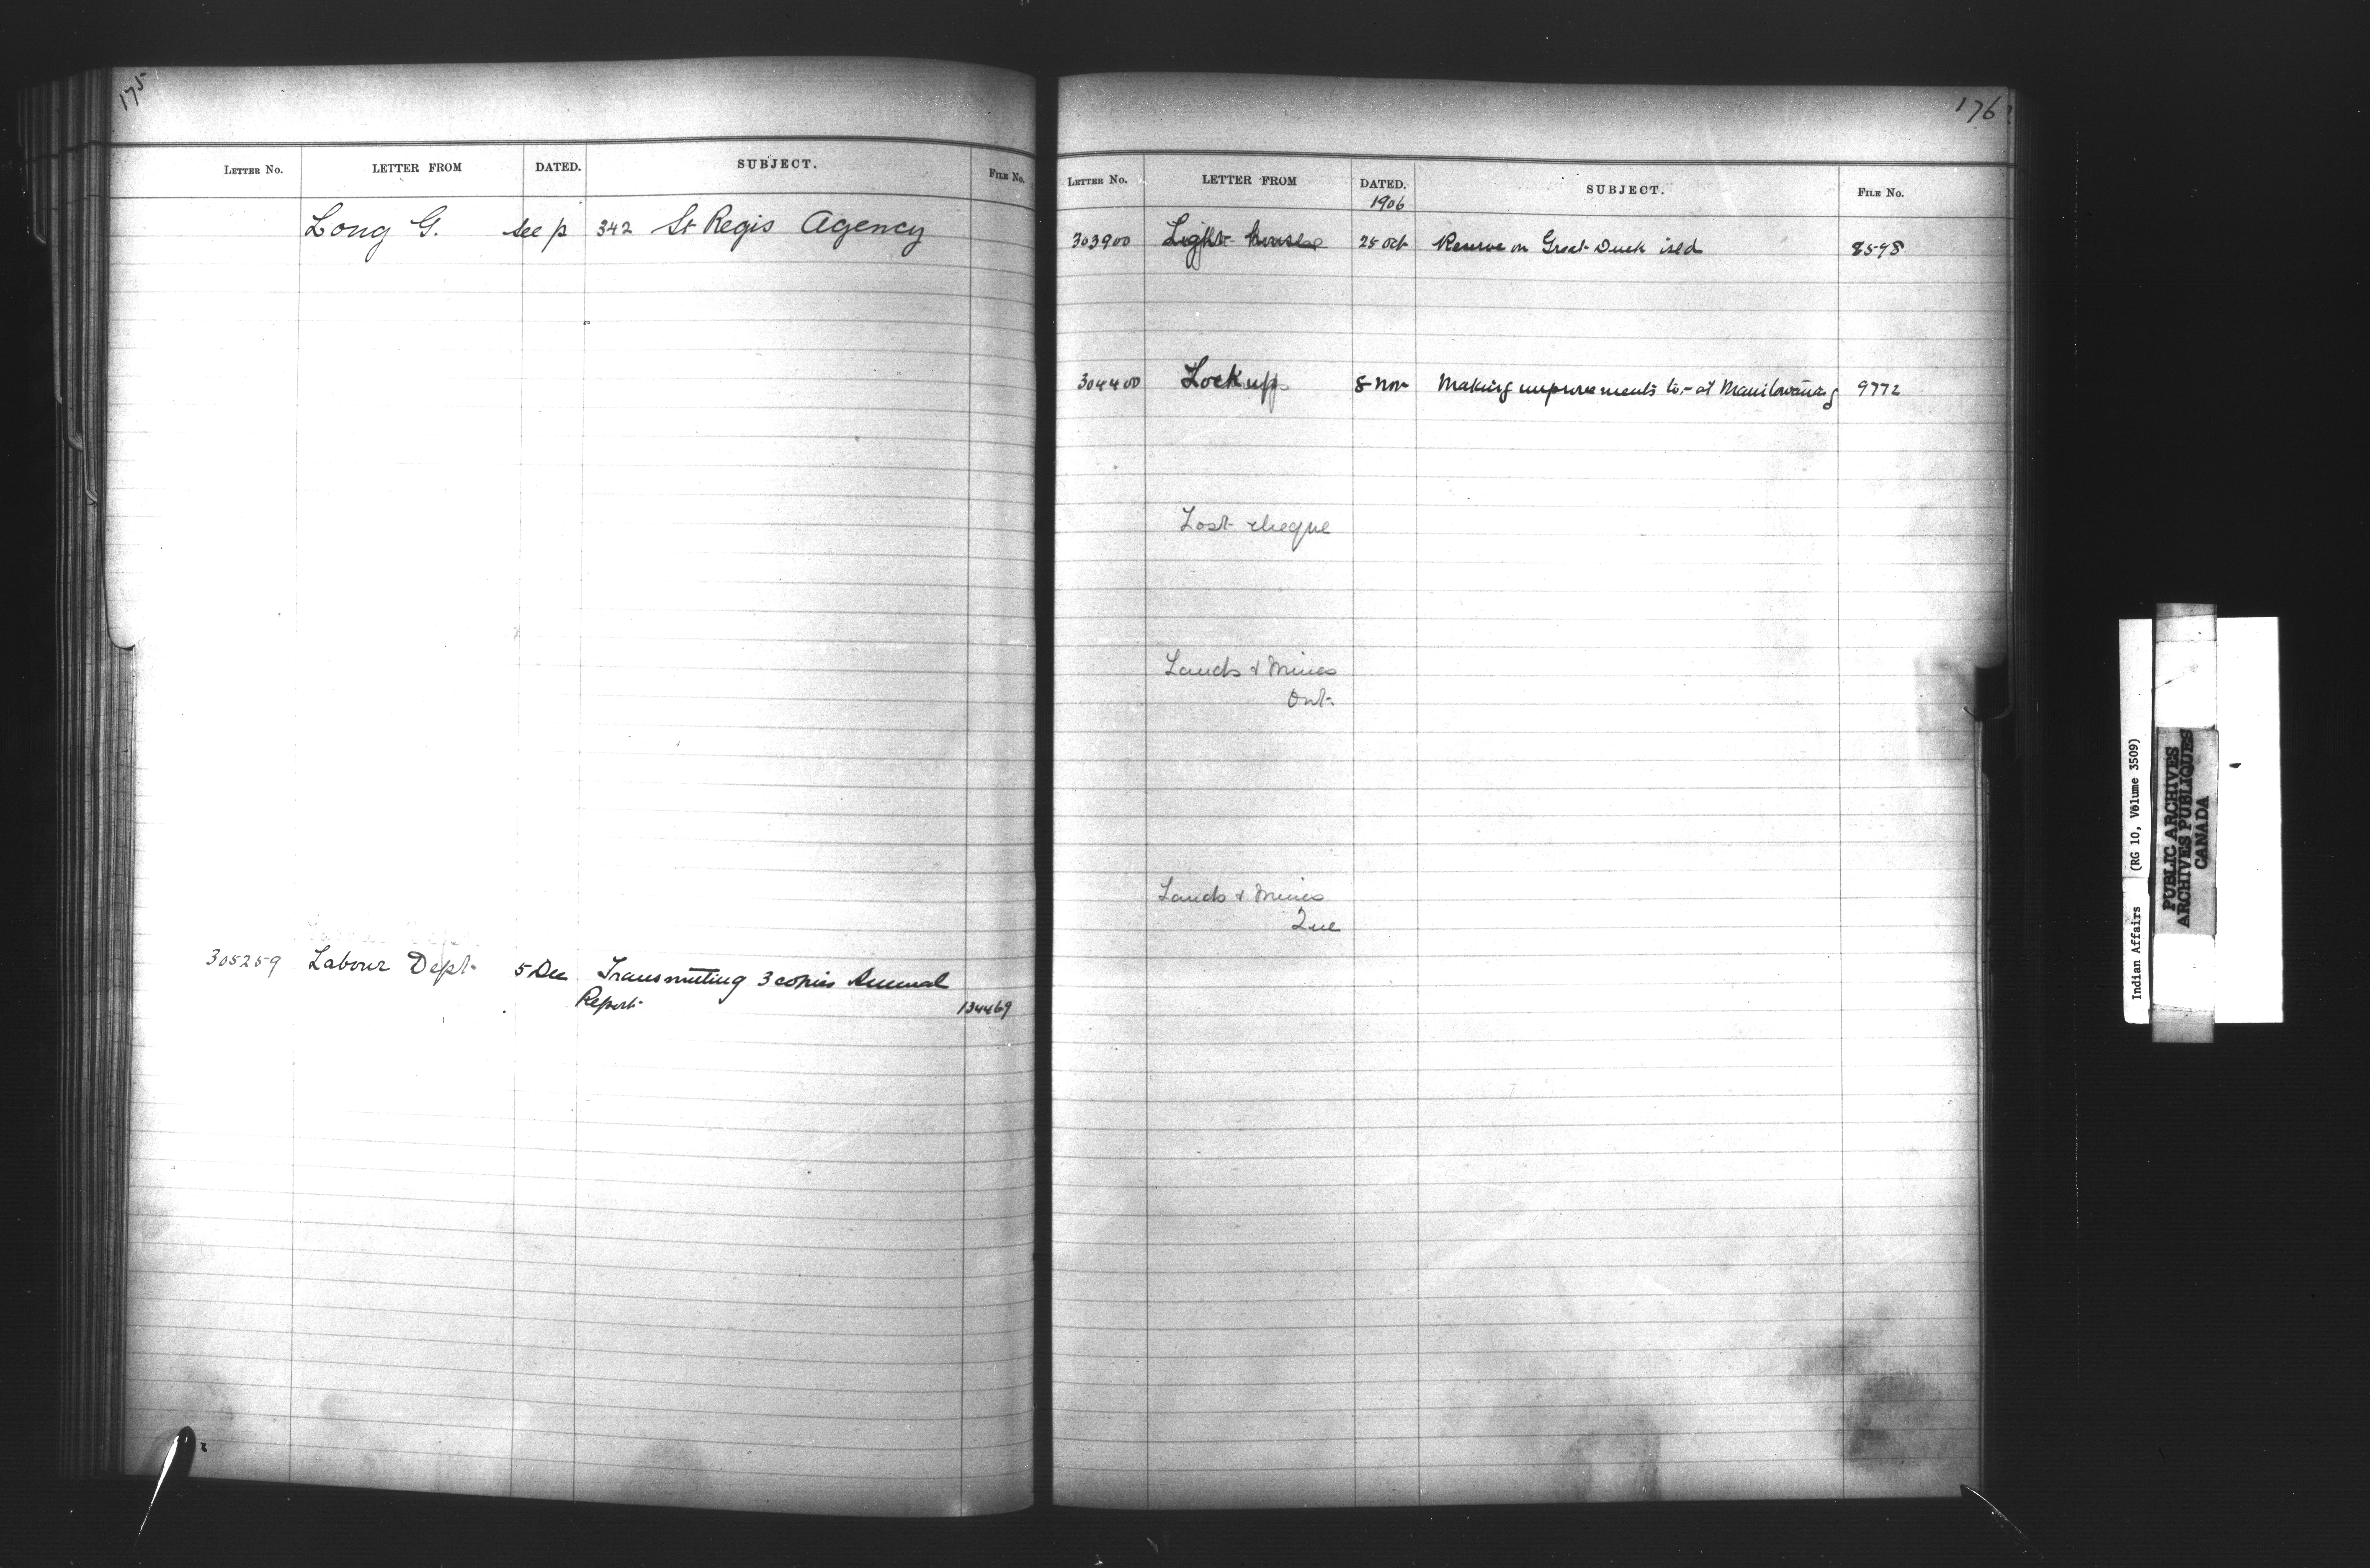 175
LETTER NO. LETTER FROM DATED. SUBJECT. FILE NO.
Long G. see p 342 St Regis Agency
305259 Labour Dept. 5 Dec Transmitting 3 copies Annual
Report 134469
176
LETTER NO. LETTER FROM DATED. SUBJECT. FILE NO.
1906
303900 Light-house 25 Oct Reserve on Great Duck isld 8598
304400 Lockup 8 Nov Making improvements to - at Manitowaning 9772
Lost cheque
Lands & Mines
Ont.
Lands & Mines
Que
Indian Affairs (RG 10, Volume 3509)
PUBLIC ARCHIVES
ARCHIVES PUBLIQUES
CANADA